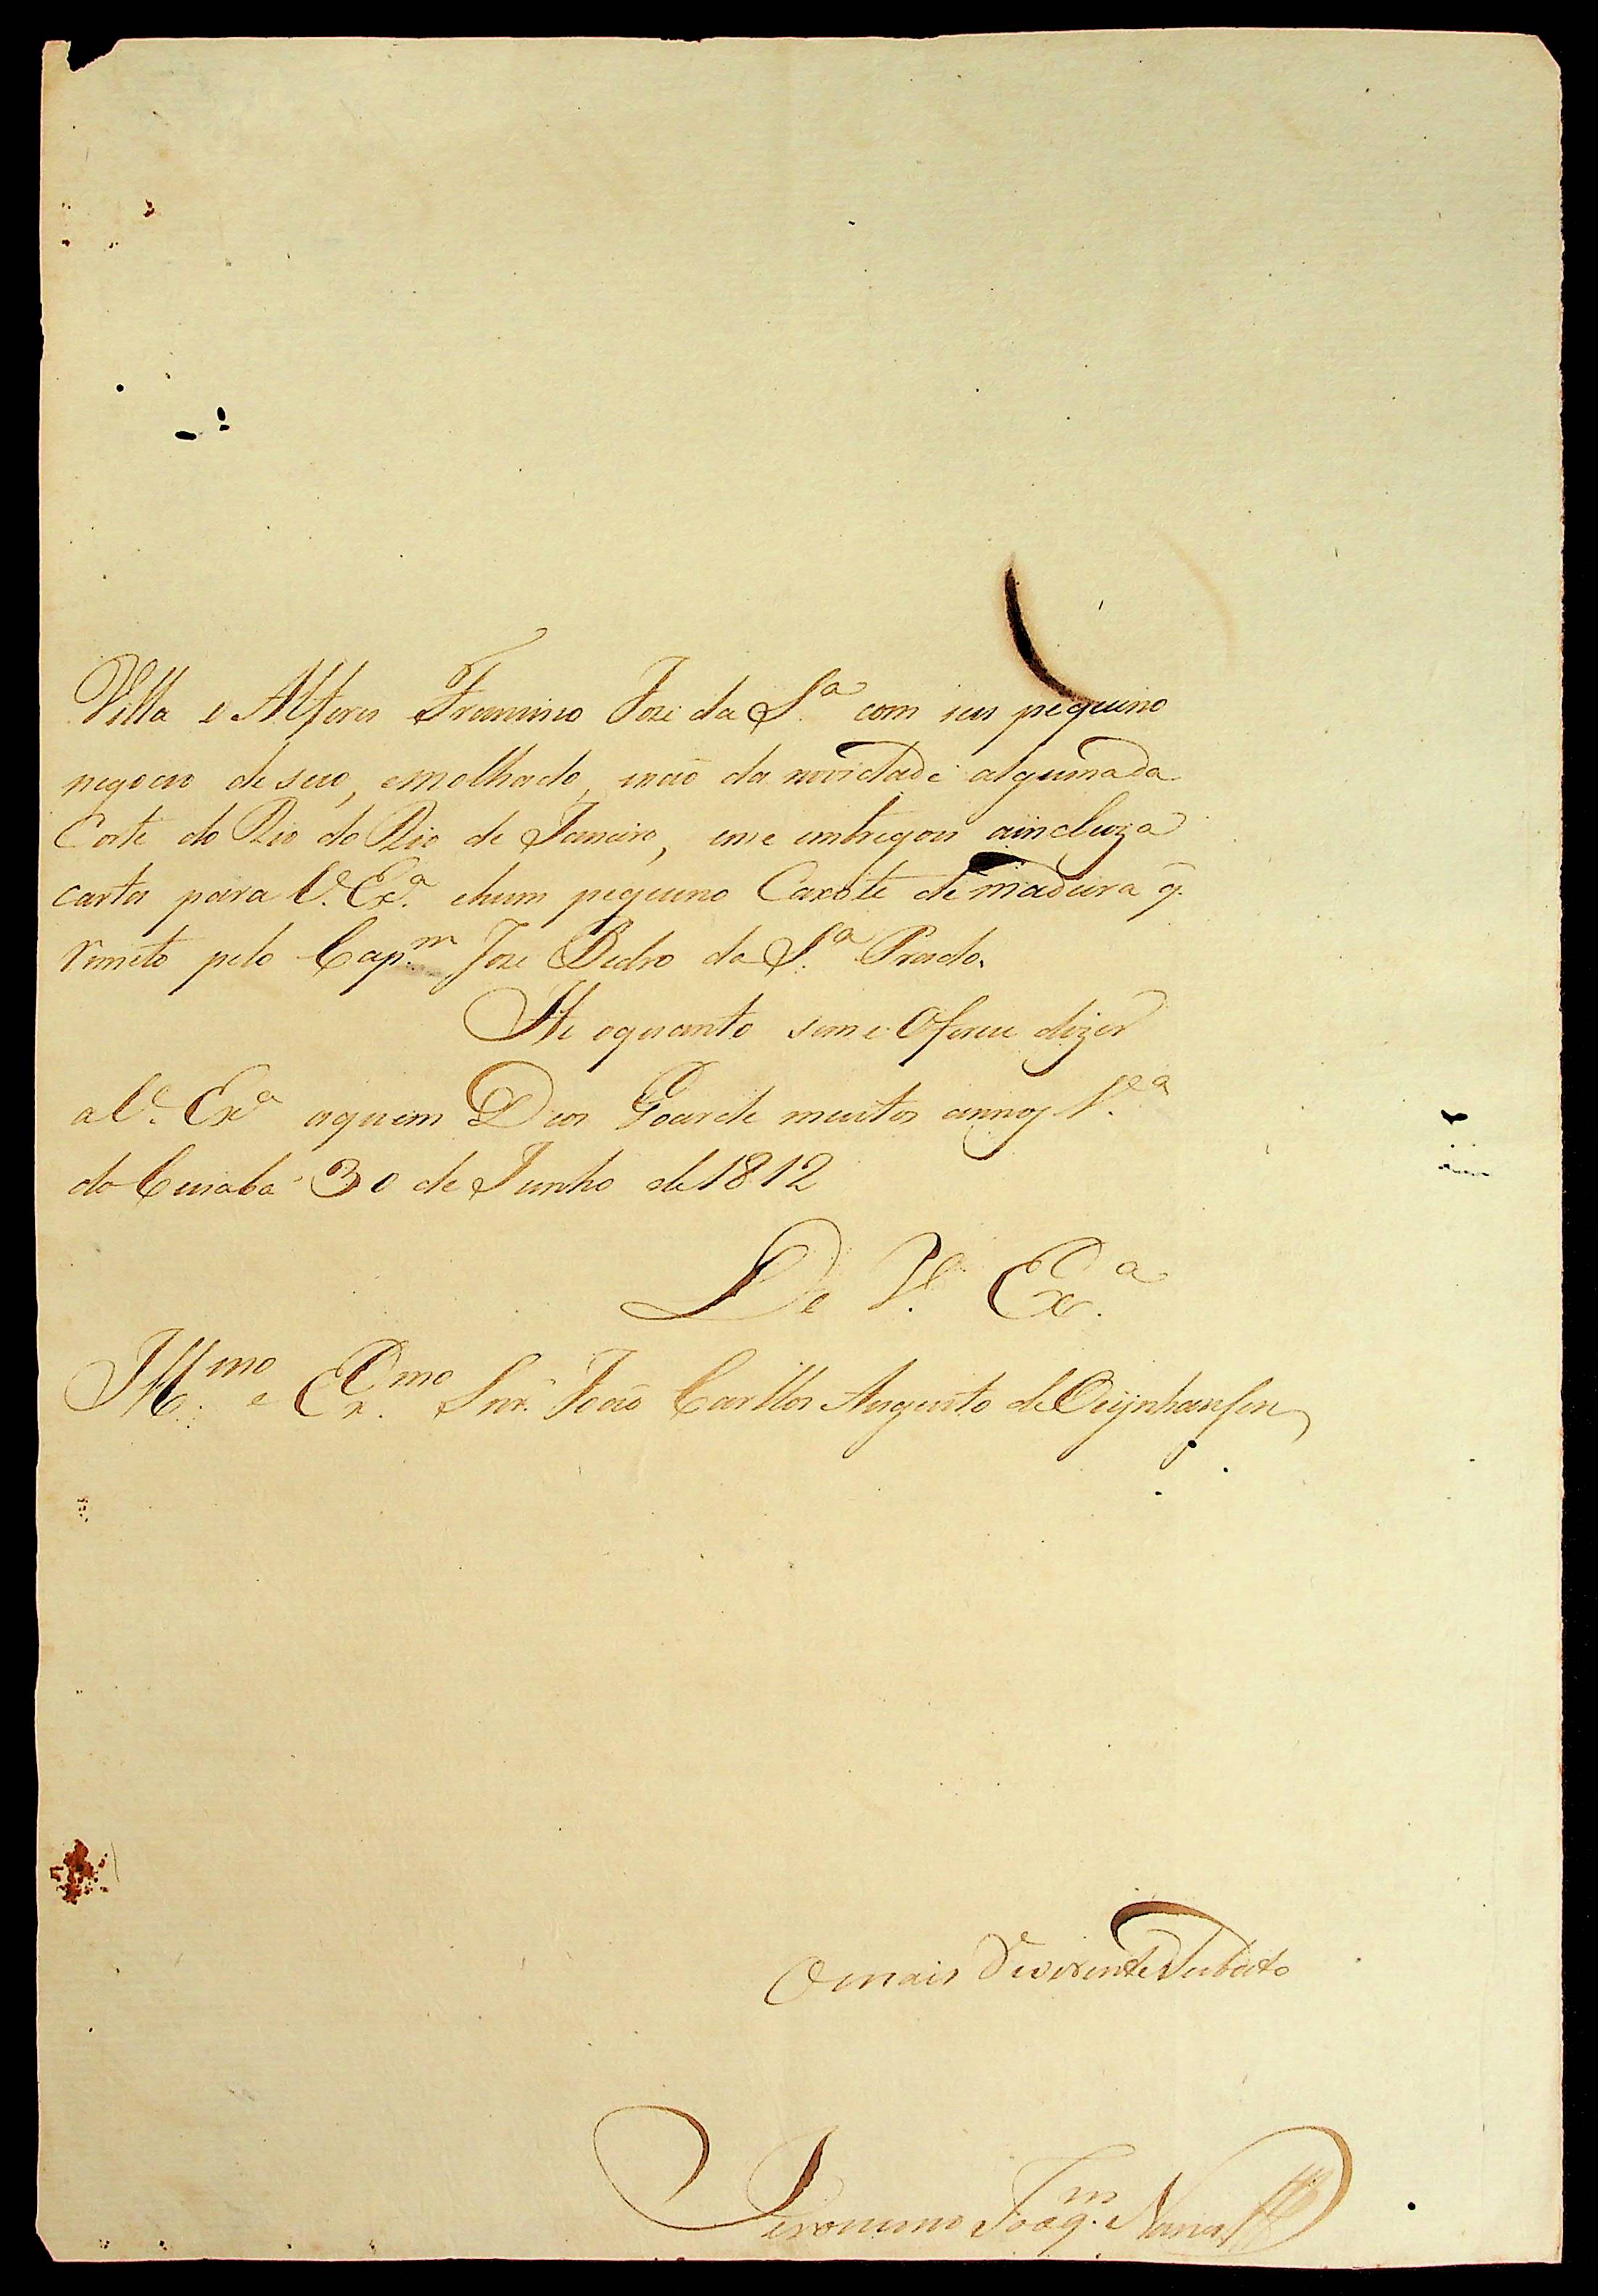 Villa o Alferes Francisco Joze da S.ª com seu pequeno
negocio de seco, emolhado, enaõ da novidade alguma da
Corte do Rio do Rio de Janeiro, eme entregou aincluza
carta para V. Ex.ª ehum pequeno Caxote de madeira q̃.
remeto pelo Cap.ᵐ Joze Pedro da S.ª Prado.
He oquanto seme Oferece dizer
a V.ᵉ Ex.ª aquem Deos Goarde muitos annos V.ª
do Cuiabá 30 de Junho de 1812
De V.ᵉ Ex.ª
Ill.ᵐᵒ e Ex.ᵐᵒ Snr. Joaõ Carllos Augusto de Oeÿnhausen
O mais Reverente Subdito
Jeronimo Joaq.ᵐ Nunes